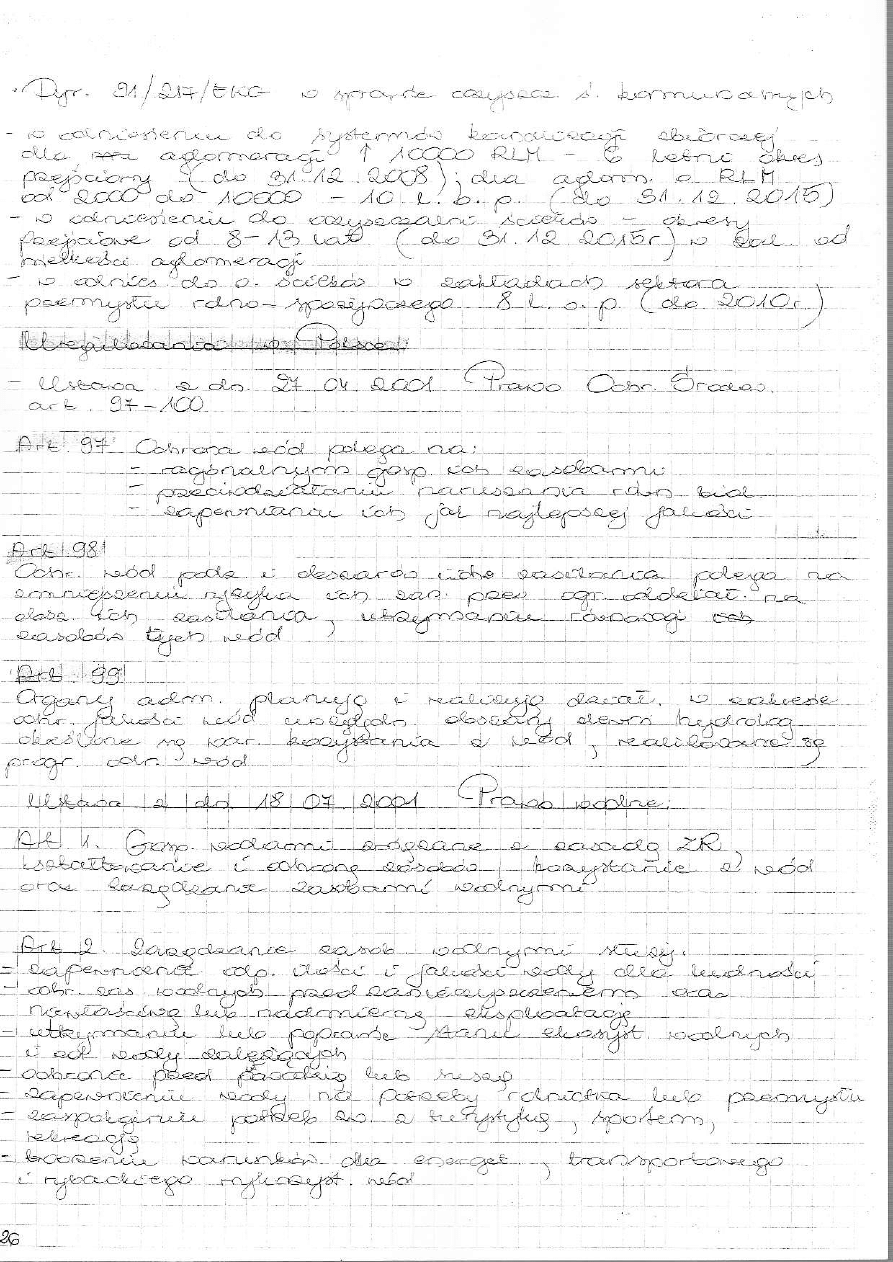 · Dyr. 91/217/EKG w sprawie oczyszcz. ś. komunalnych
- w odniesieniu do systemów kanalizacji zbiorczej
dla aglomeracji ↑ 10000 RLM – 6 letni okres
przejściowy (do 31.12.2008); dla aglom. o RLM
od 2000 do 10000 – 10 l. o. p. (do 31.12.2015)
- w odniesieniu do oczyszczalni ścieków – okresy
przejściowe od 8-13 lat (do 31.12 2015r) w zal. od
wielkości aglomeracji
- w odnies do o. ścieków w zakładach sektora
przemysłu rolno-spożywczego 8 l. o. p. (do 2010r)
- Ustawa z dn. 27 04. 2001 Prawo Ochr. Środow.
art. 97-100.
Art. 97 Ochrona wód polega na:
- racjonalnym gosp. ich zasobami
- przeciwdziałaniu naruszania równ biol
- zapewnianiu ich jak najlepszej jakości
Art 98
Ochr. wód podz i obszarów ich zasilania polega na
zmniejszeniu ryzyka ich zan. przez ogr. oddział. na
obsz. ich zasilania, utrzymaniu równowagi ich
zasobów tych wód
Art 99
Organy adm. planują i realizują dział. w zakresie
ochr. jakości wód uwzględn. obszary zlewni hydrolog
określone są war. korzystania z wód, realizowane są
progr. ochr. wód
Ustawa z dn 18 07 2001 Prawo wodne.
Art 1. Gosp. wodami związane z zasadą ZR,
kształtowanie i ochronę zasobów, korzystanie z wód
oraz zarządzanie zasobami wodnymi
Art 2. Zarządzanie zasob wodnymi służy:
- zapewnienia odp. ilości i jakości wody dla ludności
- ochr. zas wodnych przed zanieczyszczeniem oraz
niewłaściwą lub nadmierną eksploatacją
- utrzymaniu lub poprawie stanu ekosyst. wodnych
i od wody zależących
- ochrona przed powodzią lub suszą
- zapewnieniu wody na potrzeby rolnictwa lub przemysłu
- zaspokojeniu potrzeb zw. z turystyką, sportem,
rekreacją
- tworzeniu warunków dla energet, transportowego
i rybackiego wykorzyst. wód
26